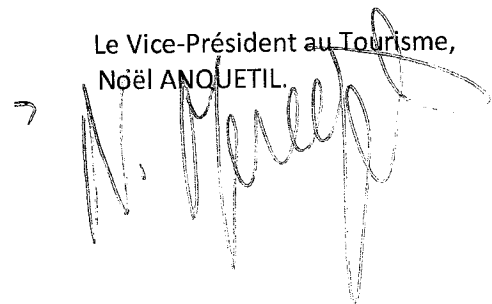 Le Vice-Président au Tourisme,
Noël ANQUETIL.